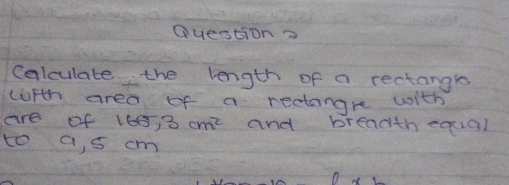 Question 2
Calculate the length of a rectangle
with area of a rectangre with
are of 165,3 cm² and breadth equal
to 9,5 cm
l x b